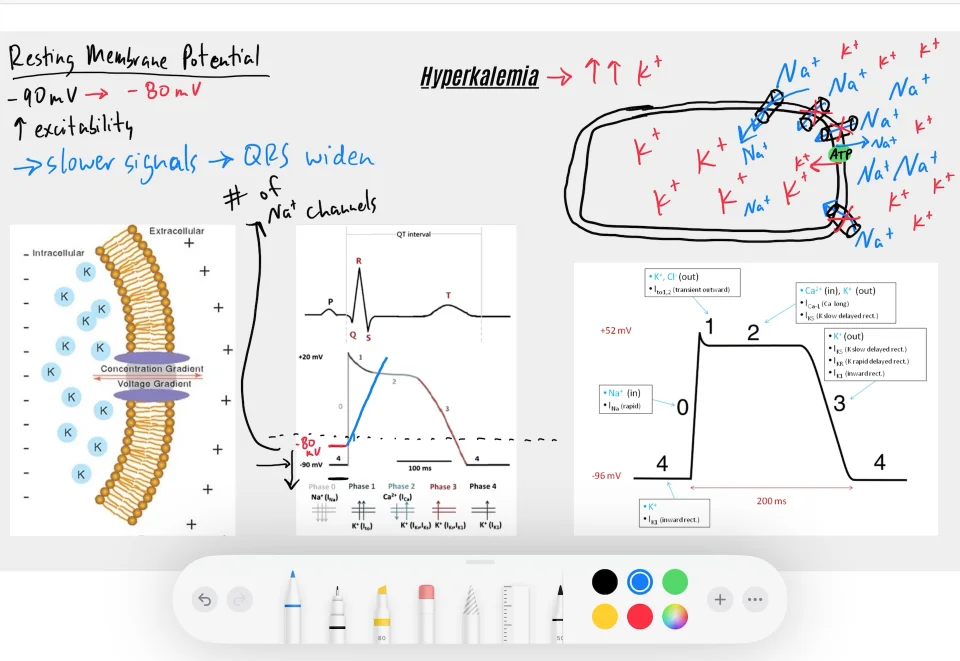 Resting Membrane Potential
-90mV → -80mV
↑ excitability
→ slower signals → QRS widen
# of
Na⁺ channels
Hyperkalemia → ↑↑ K⁺
Na⁺ K⁺ K⁺ K⁺
Na⁺ Na⁺
K⁺ K⁺ Na⁺ Na⁺ K⁺
K⁺ ATP Na⁺
K⁺ K⁺ Na⁺ K⁺ Na⁺ Na⁺
K⁺ K⁺
Na⁺ K⁺
Extracellular
+
Intracellular
-
K
K
K
K
K
K
K
Concentration Gradient
Voltage Gradient
K
K
K
K
K
QT interval
R
P
T
Q
S
+20 mV
1
2
0
3
-80
mV
-90 mV
4
4
100 ms
Phase 0 Phase 1 Phase 2 Phase 3 Phase 4
Na⁺ (I Na) Ca²⁺ (I Ca)
K⁺ (I to) K⁺ (I Kr, I Ks) K⁺ (I Kr, I K1) K⁺ (I K1)
• K⁺, Cl⁻ (out)
• I to1,2 (transient outward)
• Ca²⁺ (in), K⁺ (out)
• I Ca-L (Ca long)
• I KS (K slow delayed rect.)
• K⁺ (out)
• I KS (K slow delayed rect.)
• I KR (K rapid delayed rect.)
• I K1 (inward rect.)
+52 mV
1
2
• Na⁺ (in)
• I Na (rapid)
0
3
4
4
-96 mV
200 ms
• K⁺
• I K1 (inward rect.)
80